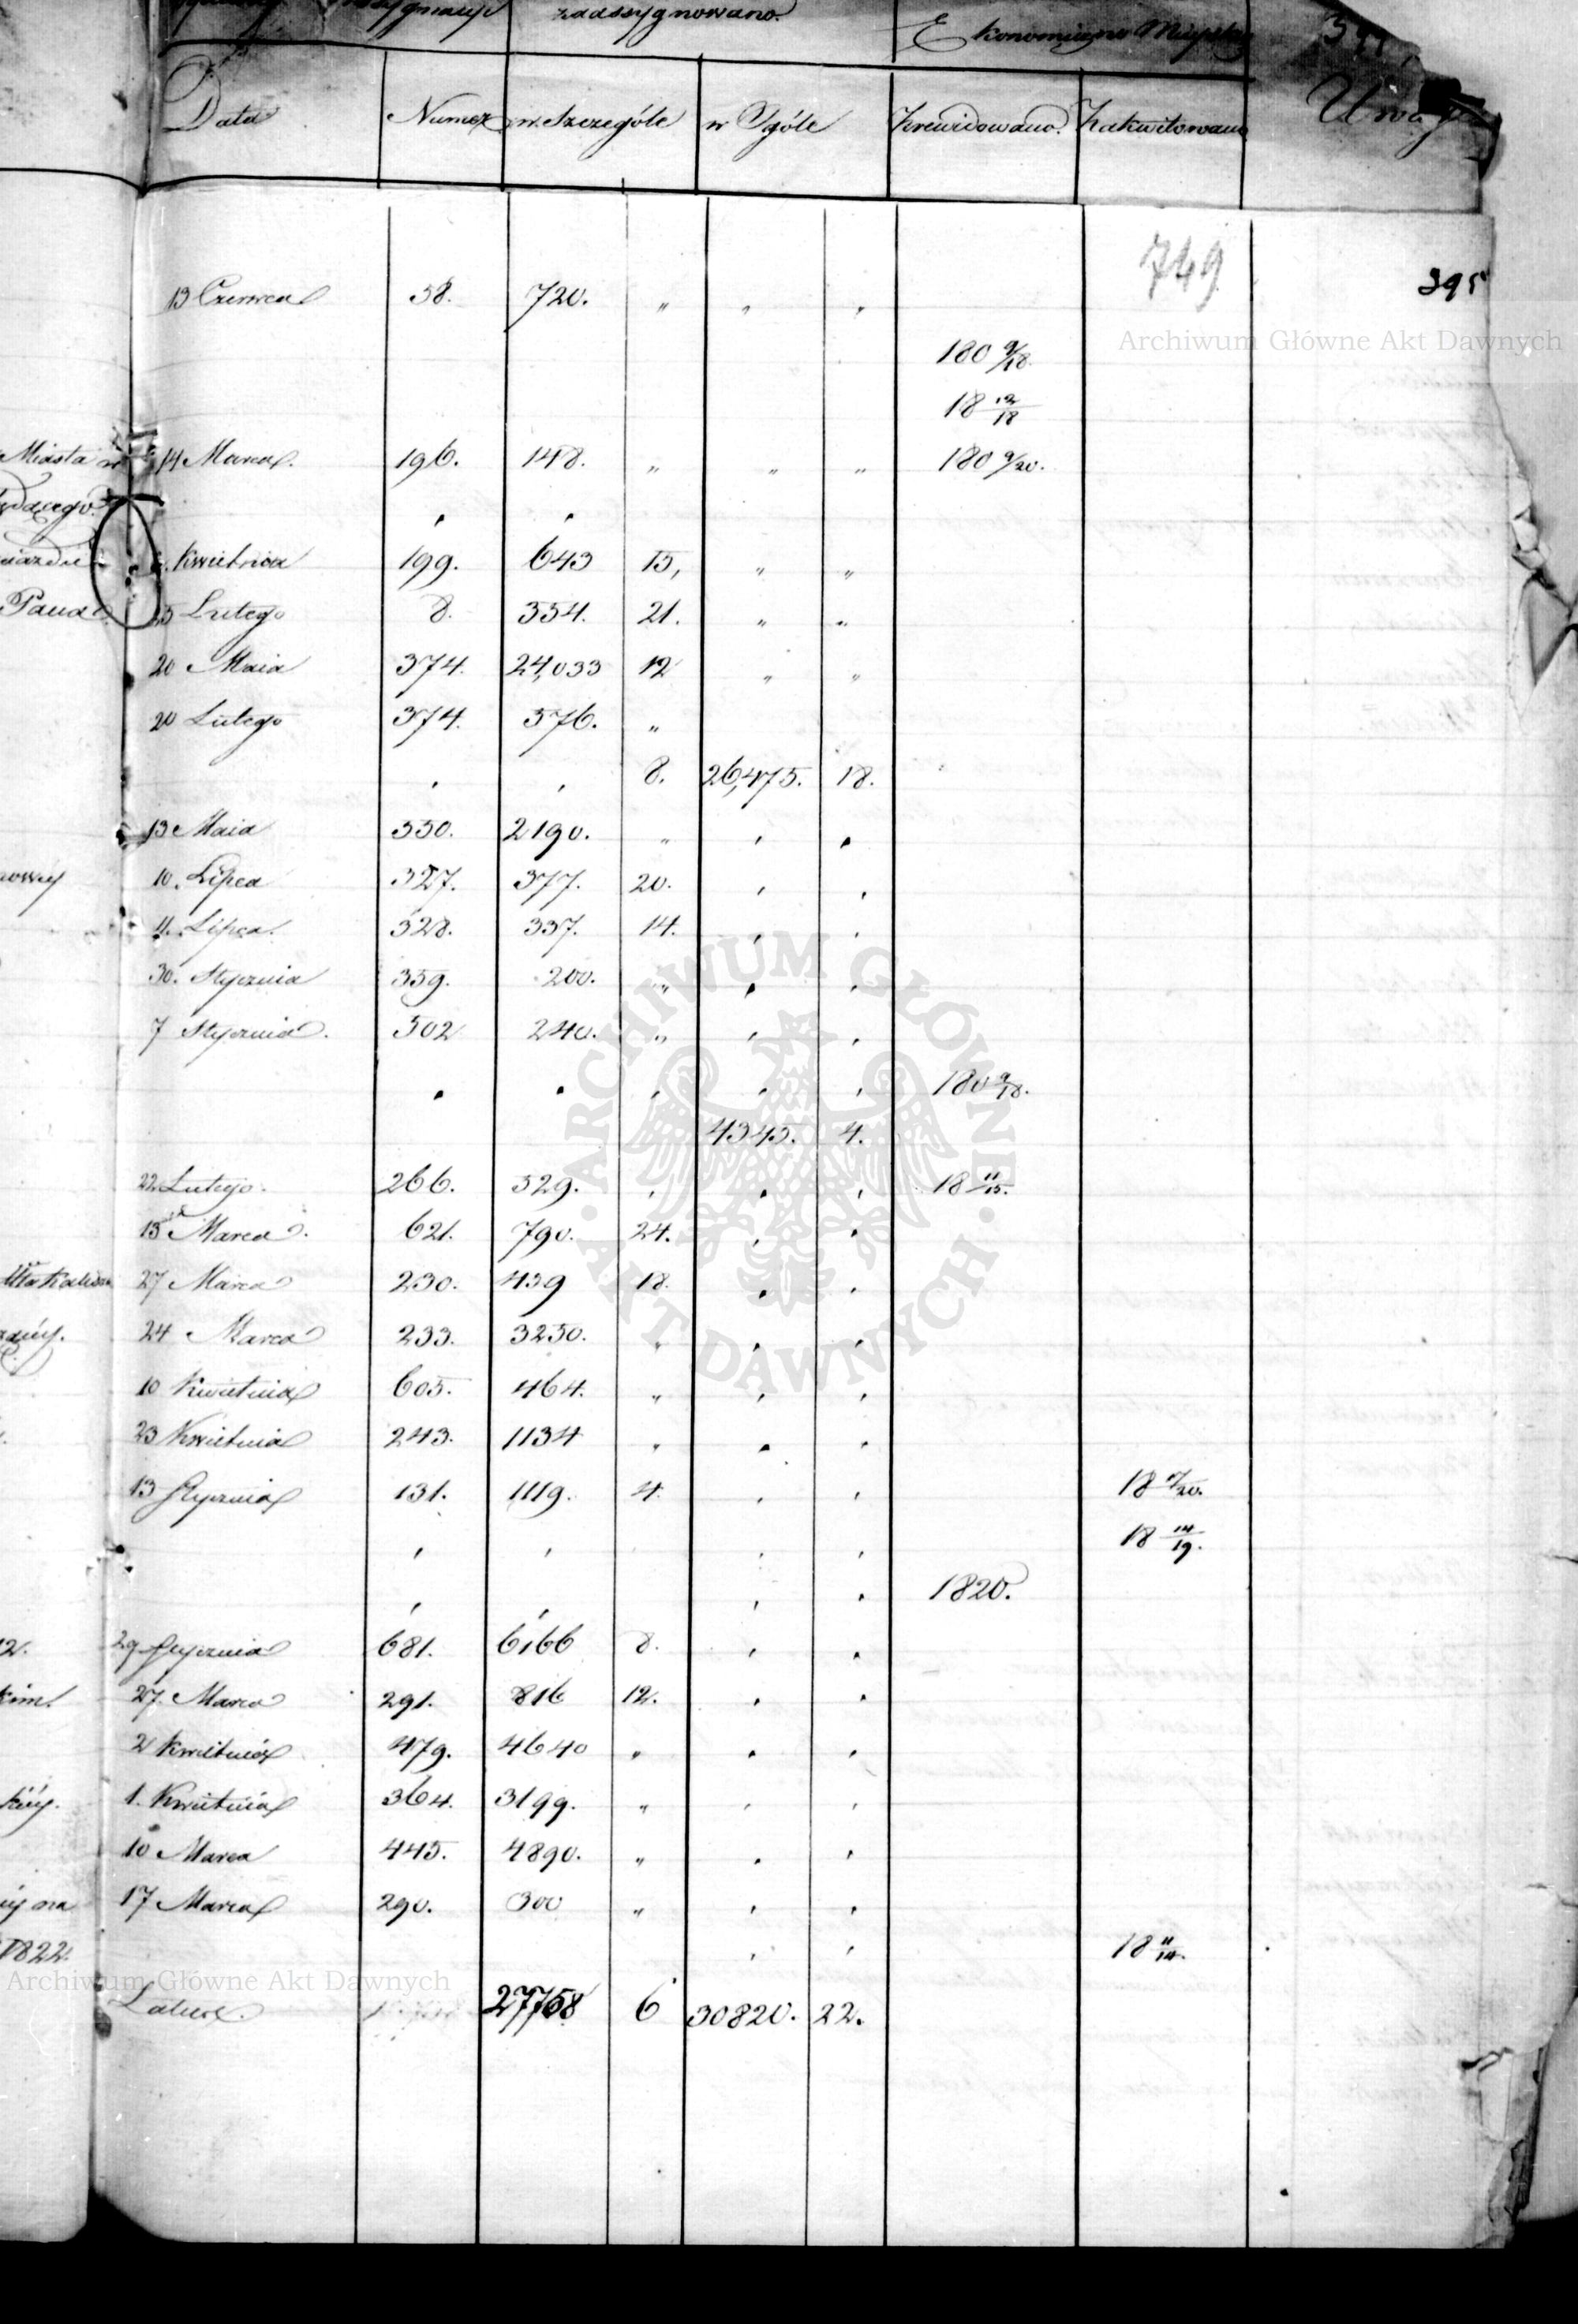 zadssygnowano.
Ekonomiczno Mieyskie
Data Numer w Szczególe w Ogóle Zrewidowano. Zakwitowano Uwagi
749
395
13 Czerwca 58. 720. " " "
Archiwum Główne Akt Dawnych
180 9/18.
18 12/18
Miasta w 14 Marca. 196. 148. " " " 180 9/20.
Kwietnia 199. 643 15, " "
Pana 25 Lutego 8. 354. 21. " "
20 Maia 374. 24,033 12 " "
20 Lutego 374. 576. "
8. 26,475. 18.
13 Maia 350. 2190. "
10. Lipca 327. 377. 20.
11. Lipca. 328. 337. 14.
30. Stycznia 359. 200. "
7 Stycznia. 502 240. "
180 9/18.
4345. 4.
22 Lutego. 266. 529. 18 11/15.
13 Marca. 621. 790. 24.
27 Marca 230. 439 18.
24 Marca 233. 3250. "
10 Kwietnia 605. 464. "
23 Kwietnia 243. 1134 "
13 Stycznia 131. 1119. 4. 18 7/20.
18 14/19.
1820.
29 Stycznia 681. 6166 8.
27. Marca 291. 816 12.
2 Kwietnia 479. 4640 "
1. Kwietnia 364. 3199. "
10 Marca 445. 4890. "
na 17 Marca 290. 300 "
1822. 18 11/14.
Archiwum Główne Akt Dawnych
Latus. 27758 6 30820. 22.
ARCHIWUM GŁÓWNE · AKT DAWNYCH ·